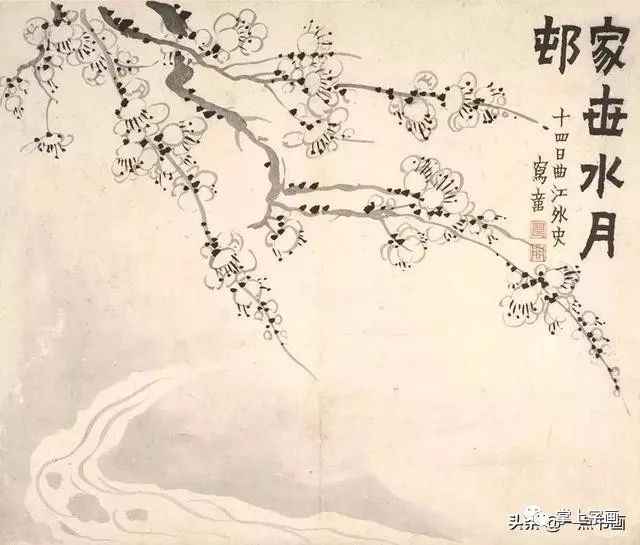 家世水月
邨
十四日曲江外史
寫
掌上字画
头条 @一点书画